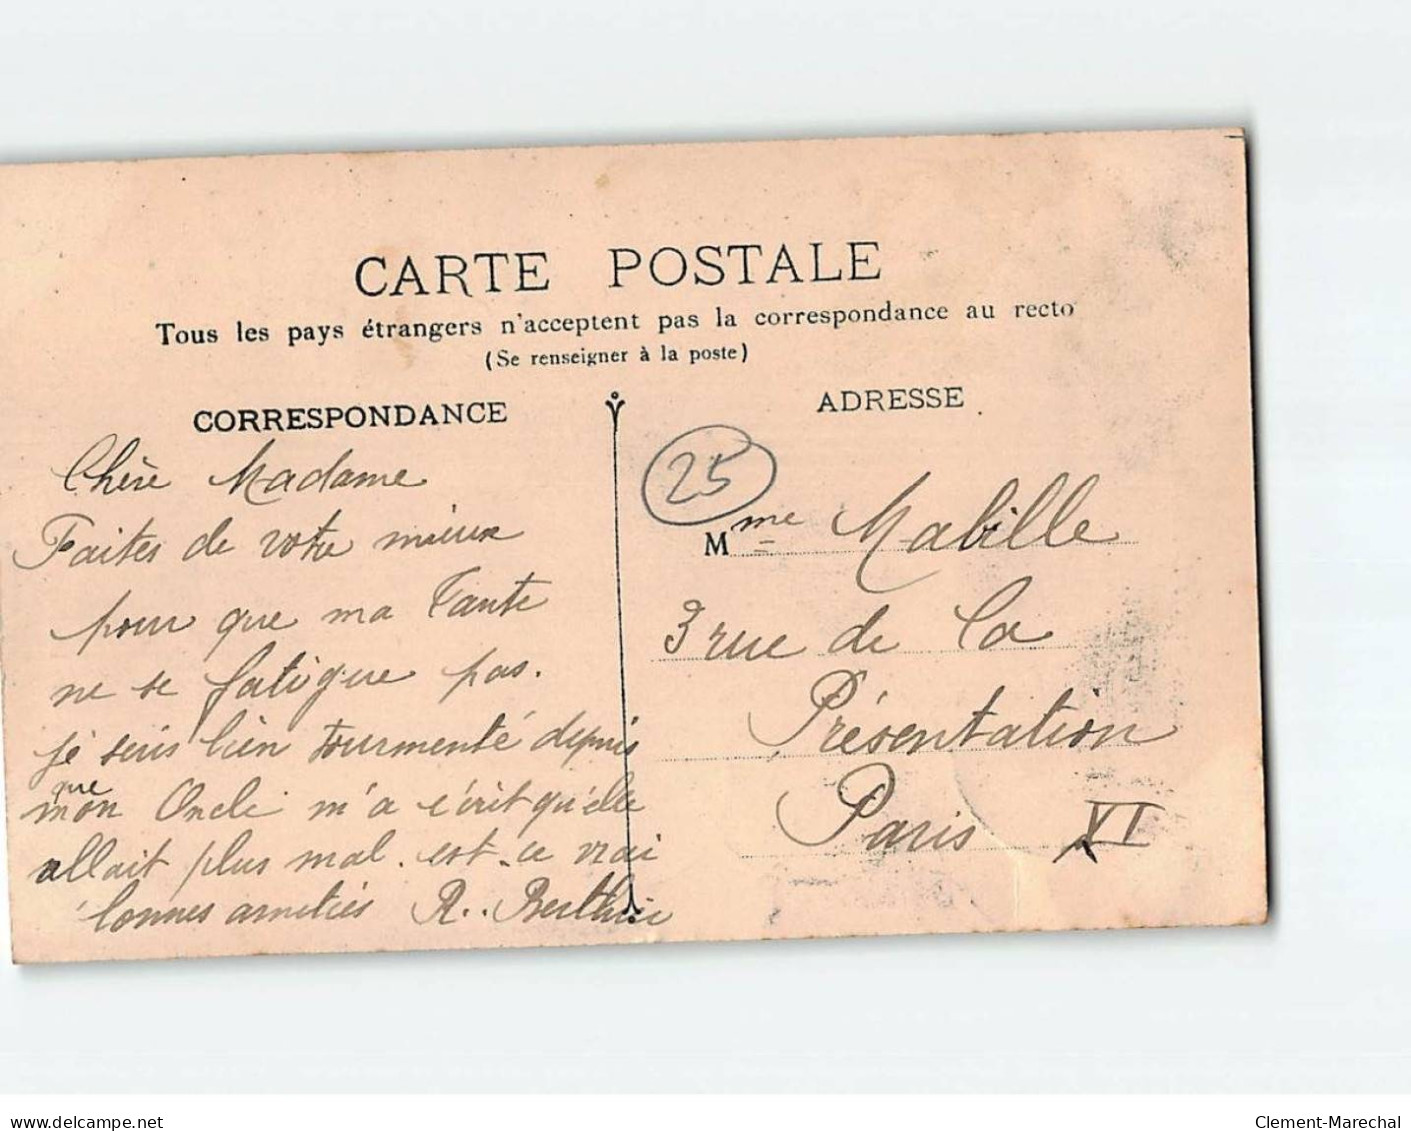 CARTE POSTALE
Tous les pays étrangers n'acceptent pas la correspondance au recto
(Se renseigner à la poste)
CORRESPONDANCE
Chère Madame
Faites de votre mieux
pour que ma Tante
ne se fatigue pas.
je suis bien tourmenté depuis
que
mon Oncle m'a écrit qu'elle
allait plus mal. est-ce vrai
bonnes amitiés R..
ADRESSE
25
Mme Mabille
3 rue de la
Présentation
Paris XI
delcampe.net
Clement-Marechal